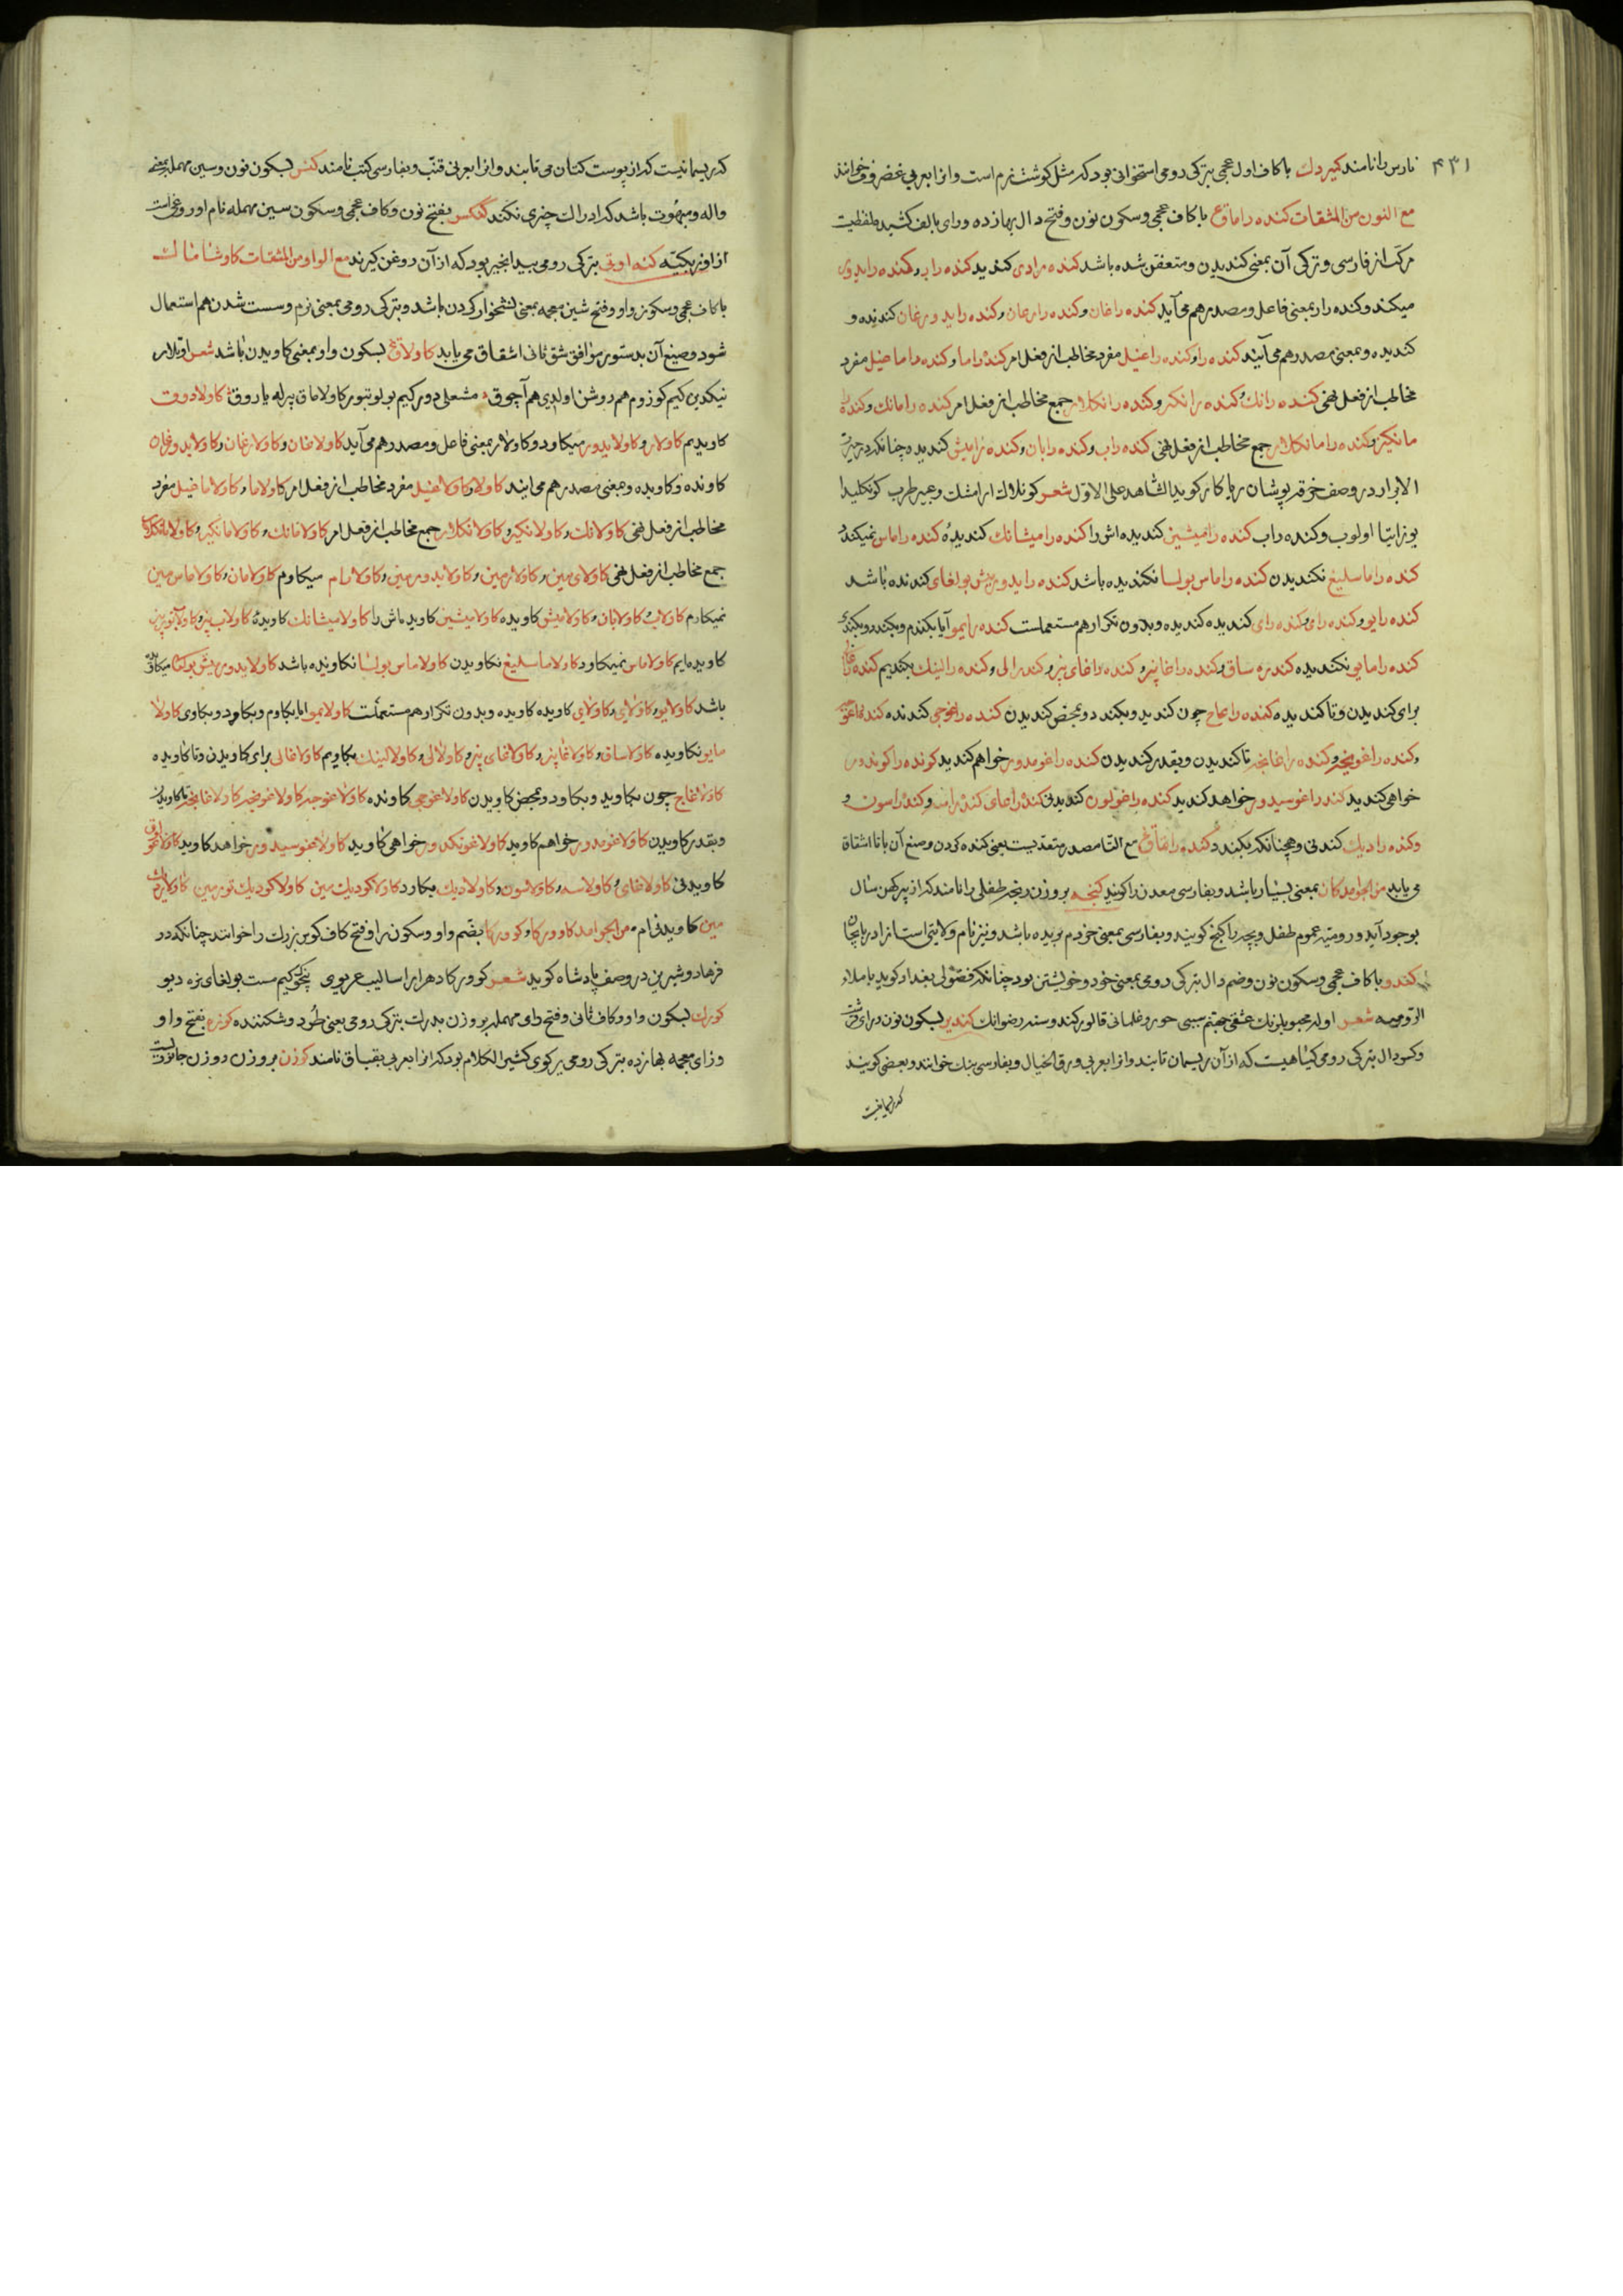 ۴۳۱
نارس را نامند کمیردك با کاف اول عجمی بترکی رومی استخوانی بود که مثل کوشت نرم است و انرا بعربی غضروف خوانند
مع النون من المشتقات کنده راماق با کاف عجمی و سکون نون و فتح دال بهازده و رای بالف کشیده لفظیست
مرکب از فارسی و ترکی آن بمعنی کندیدن و متعفن شده باشد کنده رادی کندید کنده رار و کنده رایدوی
میکند و کنده رار بمعنی فاعل و مصدر هم می آید کنده راغان و کنده رارغان و کنده راید ورغان کندنده و
کندیده و بمعنی مصدر هم می آیند کنده را و کنده راغیل مفرد مخاطب از فعل امر کنده راما و کنده راماغیل مفرد
مخاطب از فعل نهی کنده رانك و کنده رانکز و کنده رانکلار جمع مخاطب از فعل امر کنده رامانك و کنده را
مانکیز و کنده رامانکلار جمع مخاطب از فعل نهی کنده راب و کنده رابان و کنده رامیش کندیده چنانکه در حیرت
الابرار در وصف خرقه پوشان ریاکار کوید الشاهد علی الاول شعر کونلاك ار امشك و عبیر طرب کونکلیدا
یوز ایتا اولوب و کنده راب کنده رامیشین کندیده اش را کنده رامیشانك کندیدهٔ کنده راماس نمیکند
کنده راماسلیغ نکندیدن کنده راماس بولسا نکندیده باشد کنده رایدوریش بولغای کندنده باشد
کنده رایو و کنده رای و کنده رای کندیده کندیده و بدون تکرار هم مستعملست کنده رایمو آیا بکندم و بکندد و بکندی
کنده رامایو نکندیده کنده ساق و کنده راغاپیز و کنده راغای پیز و کنده رالی و کنده رالینك بکندیم کنده راغالی
برای کندیدن و تا کندیده کنده راغاج چون کندید و بکندد و بمحض کندیدن کنده راغوجی کندنده
و کنده راغونچه و کنده راغانچه تا کندیدن و بقدر کندیدن کنده راغومدور خواهم کندید کنده راغونکدور
خواهی کندید کنده راغوسیدور خواهد کندید کنده راغولوق کندیدنی کنده راغای کنده راسه و کنده راسون و
و کنده رادیك کندنی و همچنانکه بکندد و کنده راتماق مع التا مصدر متعدیست یعنی کنده کردن و صیغ آن با تا اشتقاق
می یابد من الجوامد کان بمعنی بسیار باشد و بفارسی معدن را کویند کنجه بر وزن رنجه طفلی را نامند که از پیر کهن سال
بوجود آید و رومیه عموم طفل و بچه را کنج کویند و بفارسی بمعنی خودم بریده باشد و نیز نام ولایتی است از اذربایجان
کندو با کاف عجمی و سکون نون و ضم دال بترکی رومی بمعنی خود و خویشتن بود چنانکه فضولی بغدادی کوید باملاء
الرومیه شعر اوله محبوبلرنك عشقی جهنم سببی حور و غلمانی قالور کندوسنه رضوانك کندیر بسکون نون و رای قرشت
و کسر دال بترکی رومی کیاهیست که از آن ریسمان تابند و انرا بعربی ورق الخیال و بفارسی بنك خوانند و بعضی کویند
که ریسمانیست
که ریسمانیست که از پوست کتان می تابند و انرا بعربی قنّب و بفارسی کنب نامند کنس بسکون نون و سین مهمله بمعنی
واله و مبهوت باشد که ادراك چیزی نکند کنکس بفتح نون و کاف عجمی و سکون سین مهمله نام اوروغی است
از اوزبکیّه کنه اوتی بترکی رومی بید انجیر بود که از آن روغن کیرند مع الواو من المشتقات کاوشاماك
با کاف عجمی و سکون واو و فتح شین معجمه بمعنی نشخوار کردن باشد و بترکی رومی بمعنی نرم و سست شدن هم استعمال
شود و صیغ آن بدستور موافق شق ثانی اشتقاق می یابد کاولاماق بسکون واو بمعنی کاویدن باشد شعر
نیکدین کیم کوزوم هم روشن اولدی هم آچوق مشعلی دور کیم بولوتبور کاولاماق بیرله یاروق کاولادوق
کاویدیم کاولار و کاولایدور میکاود و کاولار بمعنی فاعل و مصدر هم می آید کاولاغان و کاولارغان و کاولایدورغان
کاونده و کاویده و بمعنی مصدر هم می ایند کاولا و کاولاغیل مفرد مخاطب از فعل امر کاولاما و کاولاماغیل مفرد
مخاطب از فعل نهی کاولانك و کاولانکیز و کاولانکلار جمع مخاطب از فعل امر کاولامانك و کاولامانکیز و کاولامانکلار
جمع مخاطب از فعل نهی کاولای مین و کاولارمین و کاولایدورمین و کاولارام میکاوم کاولامان و کاولاماس مین
نمیکاوم کاولاب و کاولابان و کاولامیش کاویده کاولامیشین کاویده اش را کاولامیشانك کاویدهٔ کاولاب بیز و کاولابتوربیز
کاویده ایم کاولاماس نمیکاود کاولاماسلیغ نکاویدن کاولاماس بولسا نکاونده باشد کاولایدوریش بولسا میکاونده
باشد کاولایو و کاولای و کاولای کاویده کاویده و بدون تکرار هم مستعملست کاولایمو ایا بکاوم و بکاود و بکاوی کاولا
مایو نکاویده کاولاساق و کاولاغاپیز و کاولاغای پیز و کاولالی و کاولالینك بکاویم کاولاغالی برای کاویدن و تا کاویده
کاولاغاج چون بکاوید و بکاود و بمحض کاویدن کاولاغوجی کاونده کاولاغوچه کاولاغونچه کاولاغانچه تا کاویدن
و بقدر کاویدن کاولاغومدور خواهم کاوید کاولاغونکدور خواهی کاوید کاولاغوسیدور خواهد کاوید کاولاغولوق
کاویدنی کاولاغای و کاولاسه و کاولاسون و کاولادیك بکاود کاولاکودیك مین کاولاکودیك تورمین
مین کاویدنی ام من الجوامد کاوورکا و کوورکا بضم واو و سکون را و فتح کاف کوس بزرك را خوانند چنانکه در
فرهاد و شیرین در وصف پادشاه کوید شعر کوورکا دهر ارا سالیب غریوی کیم مست بولغای نره دیو
کورك بسکون واو و کاف ثانی و فتح رای مهمله بر وزن بدرك بترکی رومی یعنی خُرد و شکننده کوزه بفتح واو
و زای معجمه بهازده بترکی رومی پر کوی کثیر الکلام بود که انرا بعربی بقباق نامند کوزن بر وزن دوزن جانوریست